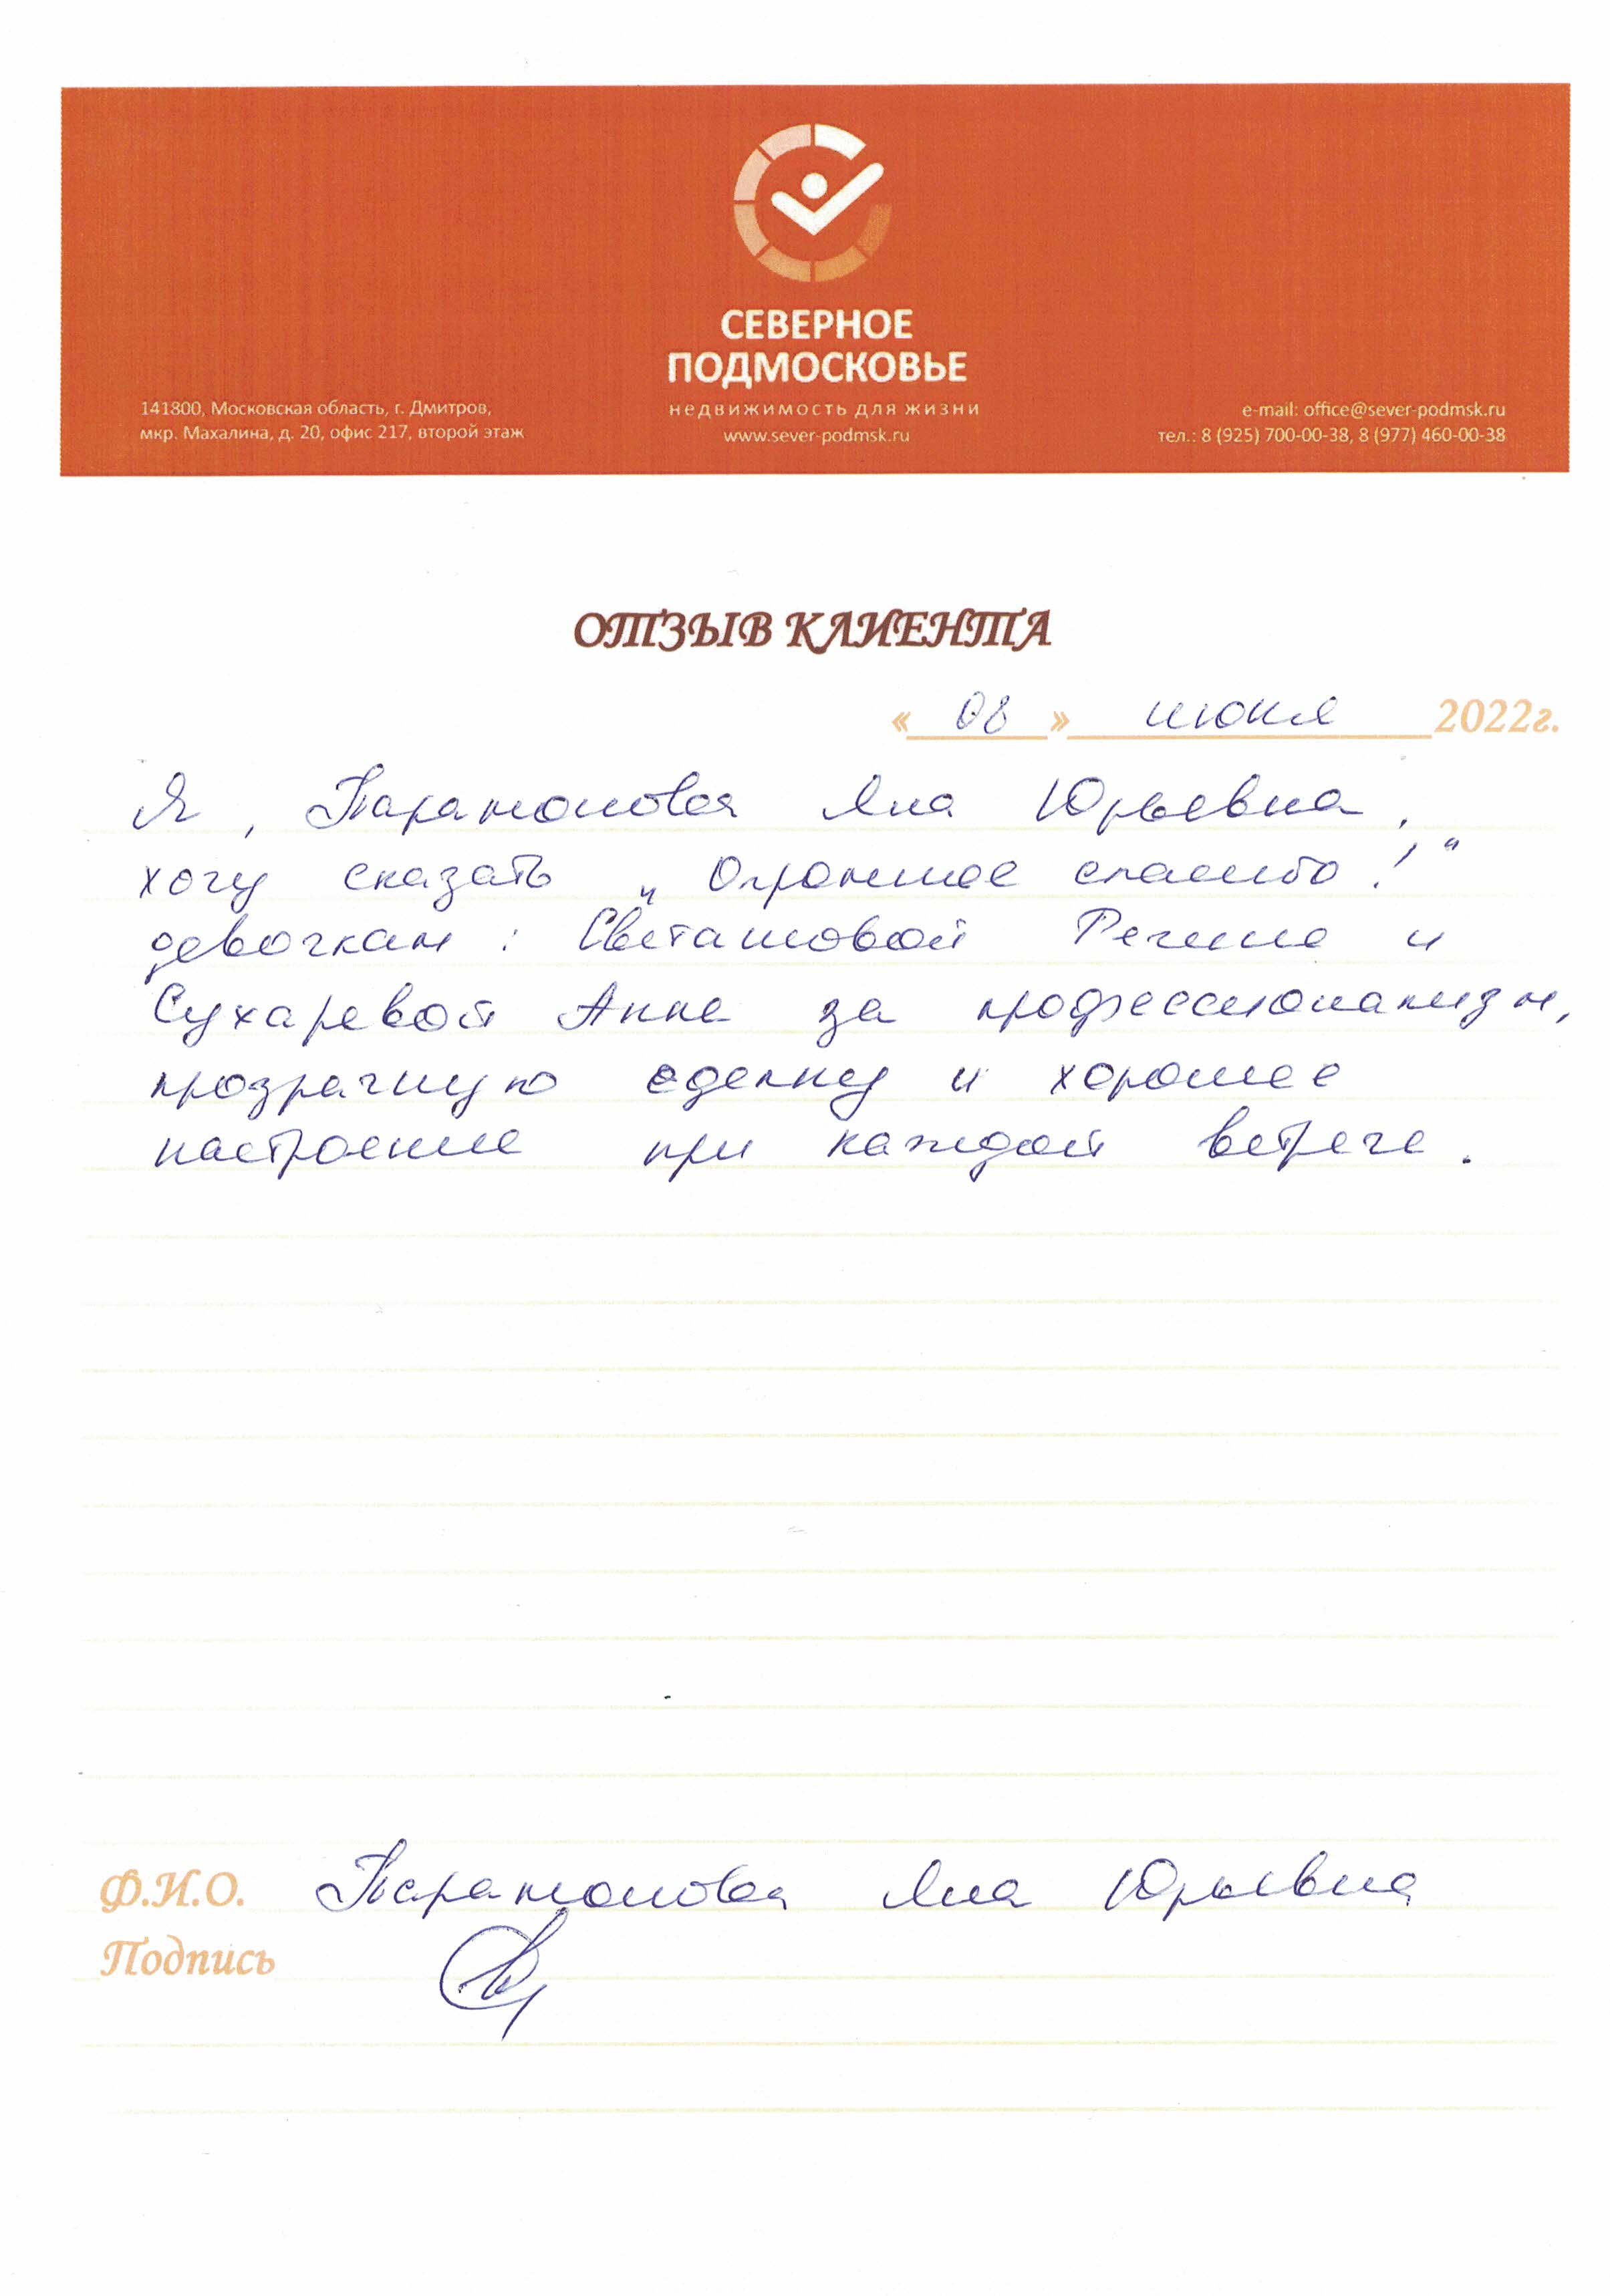 СЕВЕРНОЕ
ПОДМОСКОВЬЕ
недвижимость для жизни
www.sever-podmsk.ru
141800, Московская область, г. Дмитров,
мкр. Махалина, д. 20, офис 217, второй этаж
e-mail: office@sever-podmsk.ru
тел.: 8 (925) 700-00-38, 8 (977) 460-00-38
ОТЗЫВ КЛИЕНТА
« 08 » июня 2022г.
Я, Парамонова Яна Юрьевна,
хочу сказать „Огромное спасибо!"
девочкам: Светашовой Регине и
Сухаревой Анне за профессионализм,
прозрачную сделку и хорошее
настроение при каждой встрече.
Ф.И.О. Парамонова Яна Юрьевна
Подпись